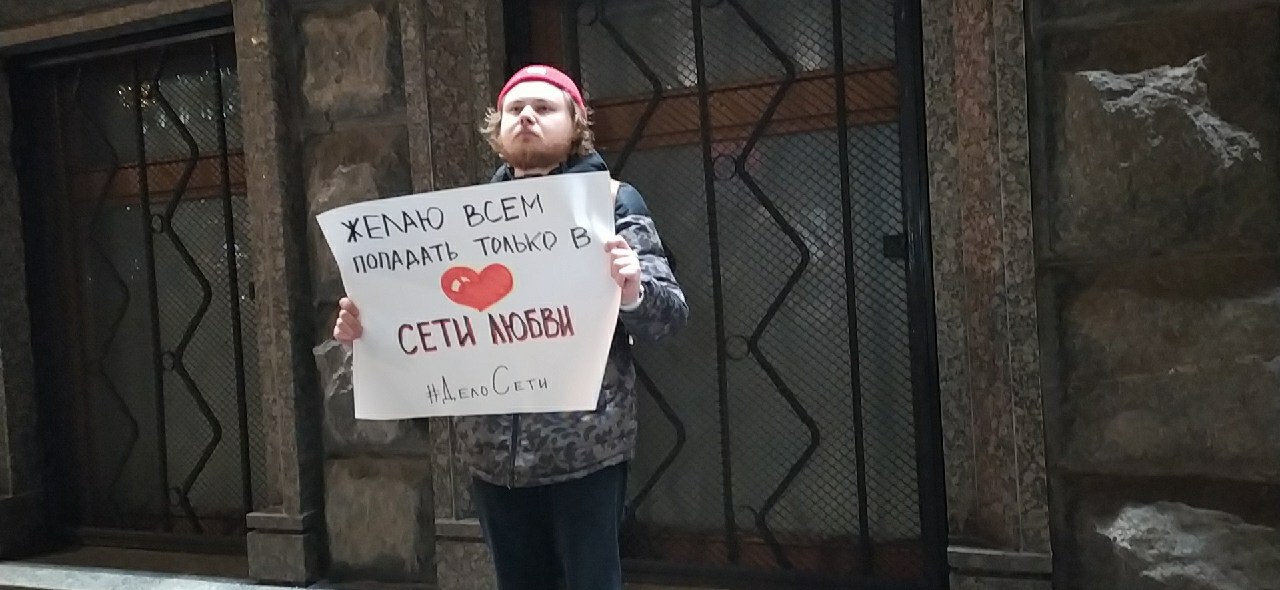 ЖЕЛАЮ ВСЕМ
ПОПАДАТЬ ТОЛЬКО В
СЕТИ ЛЮБВИ
#ДелоСети